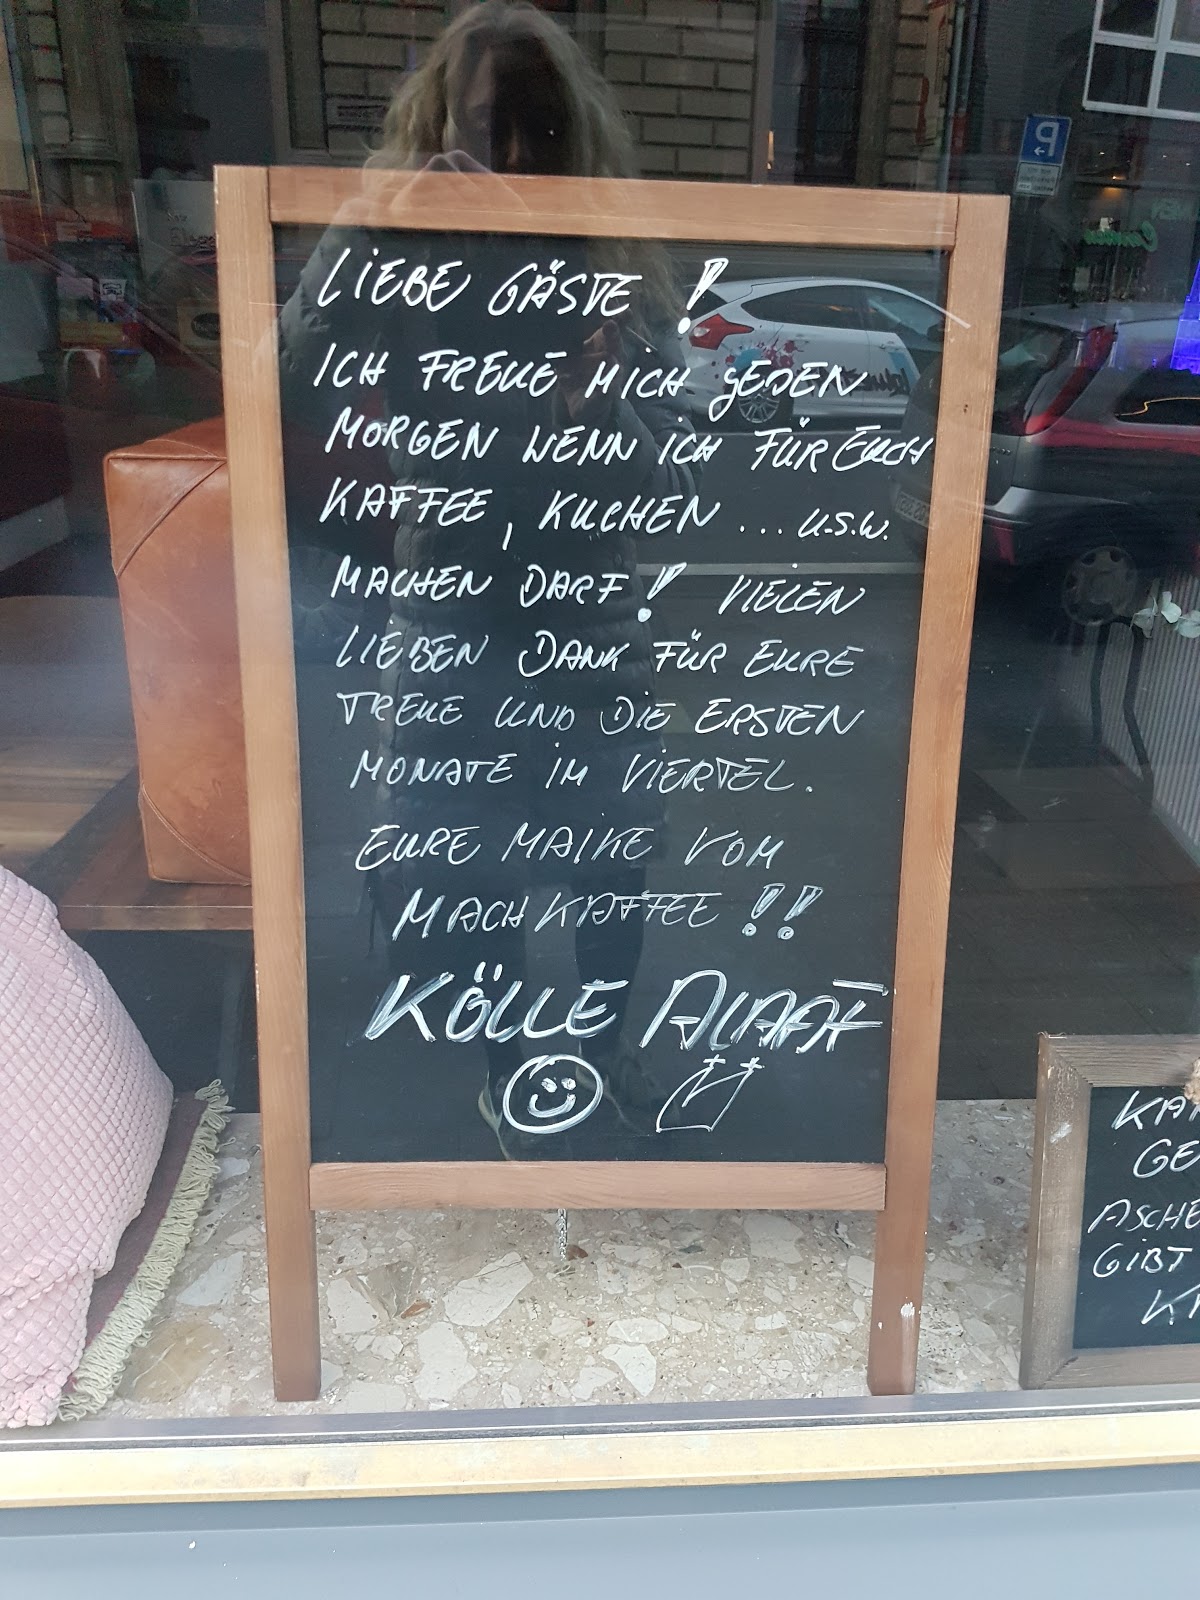 LIEBE GÄSTE !
ICH FREUE MICH JEDEN
MORGEN WENN ICH FÜR EUCH
KAFFEE, KUCHEN ... U.S.W.
MACHEN DARF! VIELEN
LIEBEN DANK FÜR EURE
TREUE UND DIE ERSTEN
MONATE IM VIERTEL.
EURE MAIKE VOM
MACHKAFFEE !!
KÖLLE ALAAF
P
KA
GE
ASCHE
GIBT
K